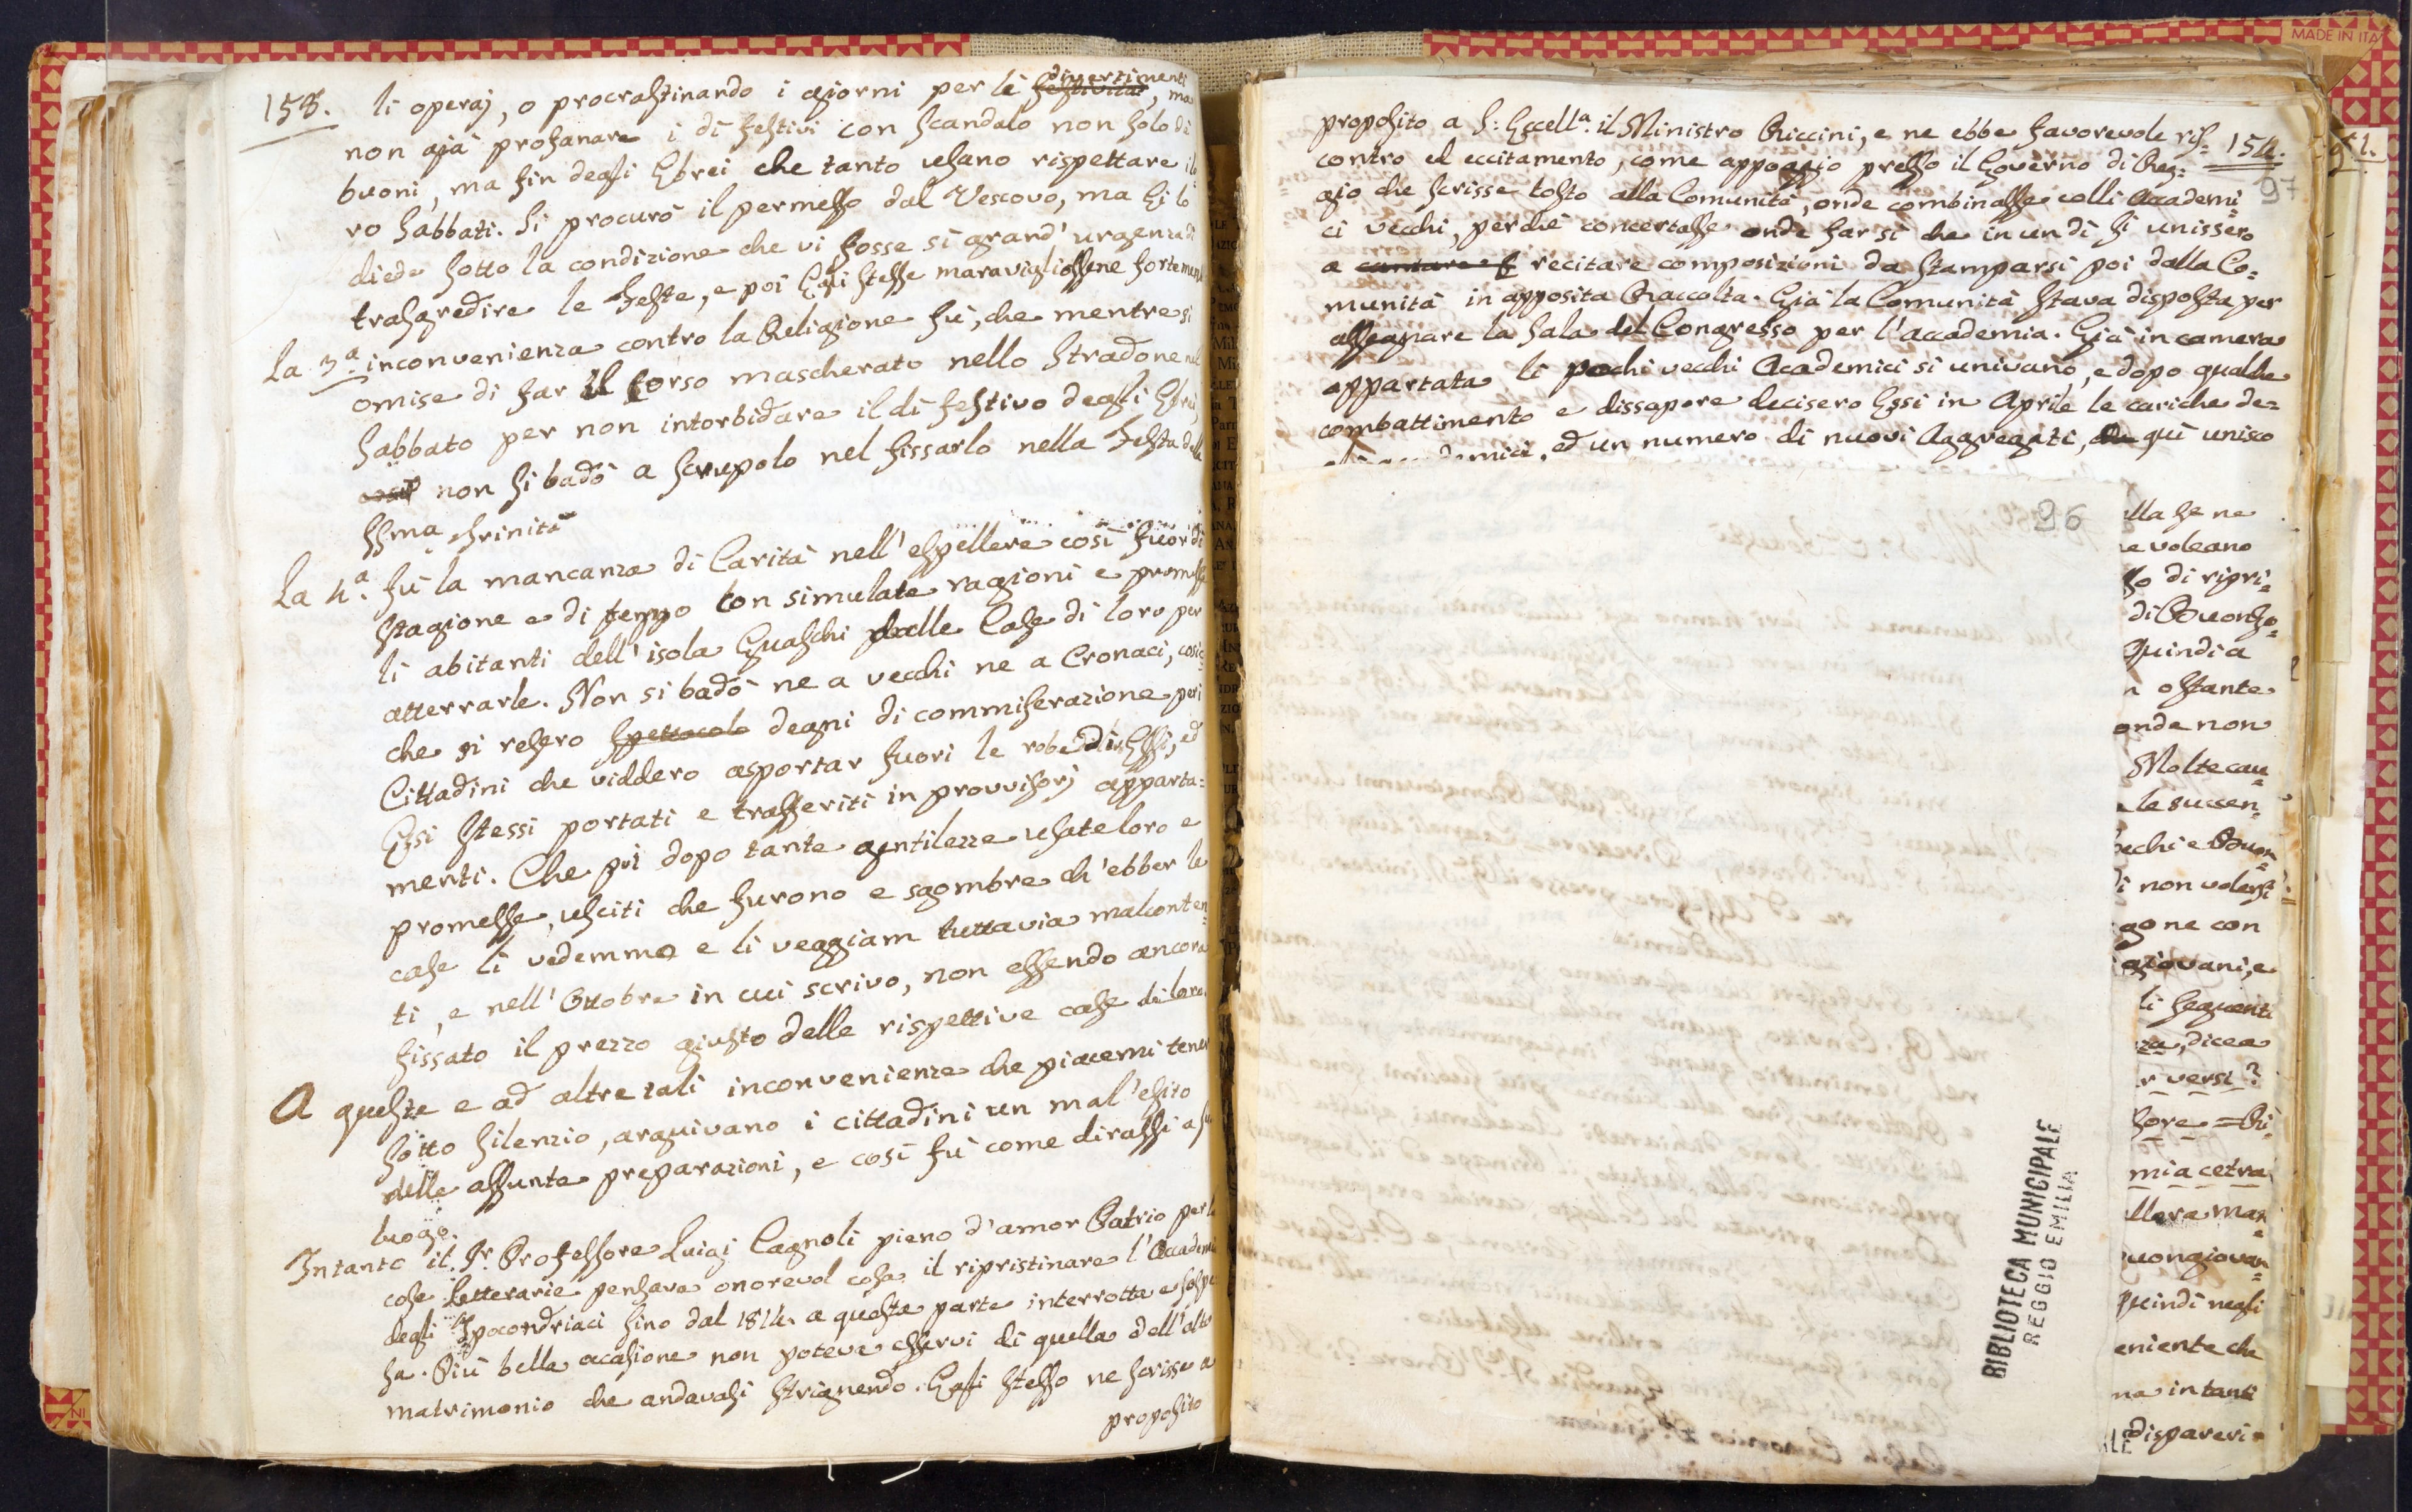 153.
li operaj, o procrastinando i giorni per li festività divertimenti, ma
non già profanare i dì festivi con scandalo non solo di
buoni, ma fin degli Ebrei che tanto usano rispettare i lo
ro Sabbati. Si procurò il permesso dal Vescovo, ma Ei lo
diede sotto la condizione che vi fosse sì grand' urgenza di
trasgredire le Feste, e poi Egli stesse maravigliossene fortement
La 3.a inconvenienza contro la Religione fù, che mentre si
omise di far il Corso mascherato nello Stradone nel
Sabbato per non intorbidare il dì festivo degli Ebrei,
non si badò a scrupolo nel fissarlo nella Festa della
SSma. Trinità
La 4.a fù la mancanza di Carità nell' espellere così fuor di
stagione e di tempo con simulate ragioni e promesse
li abitanti dell' isola Guaschi dalle Case di loro per
atterrarle. Non si badò ne a vecchi ne a Cronaci, cosic=
che si resero spettacolo degni di commiserazione per i
Cittadini che viddero asportar fuori le robe di Essi, ed
Essi stessi portati e trasferiti in provvisorj apparta=
menti. Che poi dopo tante gentilezze usate loro e
promesse, usciti che furono e sgombre ch' ebber le
case li vedemmo e li veggiam tuttavia malconten=
ti, e nell' Ottobre in cui scrivo, non essendo ancora
fissato il prezzo giusto delle rispettive case di loro.
A queste e ad altre tali inconvenienze che piacemi tener
sotto silenzio, arguivano i cittadini un mal' esito
delle assunte preparazioni, e così fù come dirassi a suo
luogo.
Intanto il Sr. Professore Luigi Cagnoli pieno d' amor Patrio per le
cose letterarie pensava onorevol cosa il ripristinare l' Accademia
degli Ipocondriaci sino dal 1814. a questa parte interrotta e sospe
sa. Più bella occasione non poteva esservi di quella dell' alto
matrimonio che andavasi strignendo. Egli stesso ne scrisse a
proposito
proposito a S: Eccell.a il Ministro Riccini, e ne ebbe favorevole ris=
154.
97
contro ed eccitamento, come appoggio presso il Governo di Reg=
gio che scrisse tosto alla Comunità, onde combinasse colli Academi=
ci vecchi, perchè concertasse onde far sì che in un dì si unissero
a cantare e recitare composizioni da stamparsi poi dalla Co=
munità in apposita Raccolta. Già la Comunità stava disposta per
assegnare la Sala del Congresso per l' accademia. Già in camera
appartata li pochi vecchi Academici si univano, e dopo qualche
combattimento e dissapore decisero Essi in Aprile le cariche de=
ed un numero di nuovi Aggregati, che quì unisco
96
lla se ne
e voleano
so di ripri=
di Buonso=
Quindi a
n ostante
onde non
Molte cau=
le succen=
ecchi e Buon=
i non volersi
go ne con
giovani, e
li seguenti
za, dicea
r versi?
sore = Ri=
mia cetra
llora man=
uongiovan=
quindi negli
eniente che
na in tanti
dispareri
BIBLIOTECA MUNICIPALE
REGGIO EMILIA
MADE IN ITA